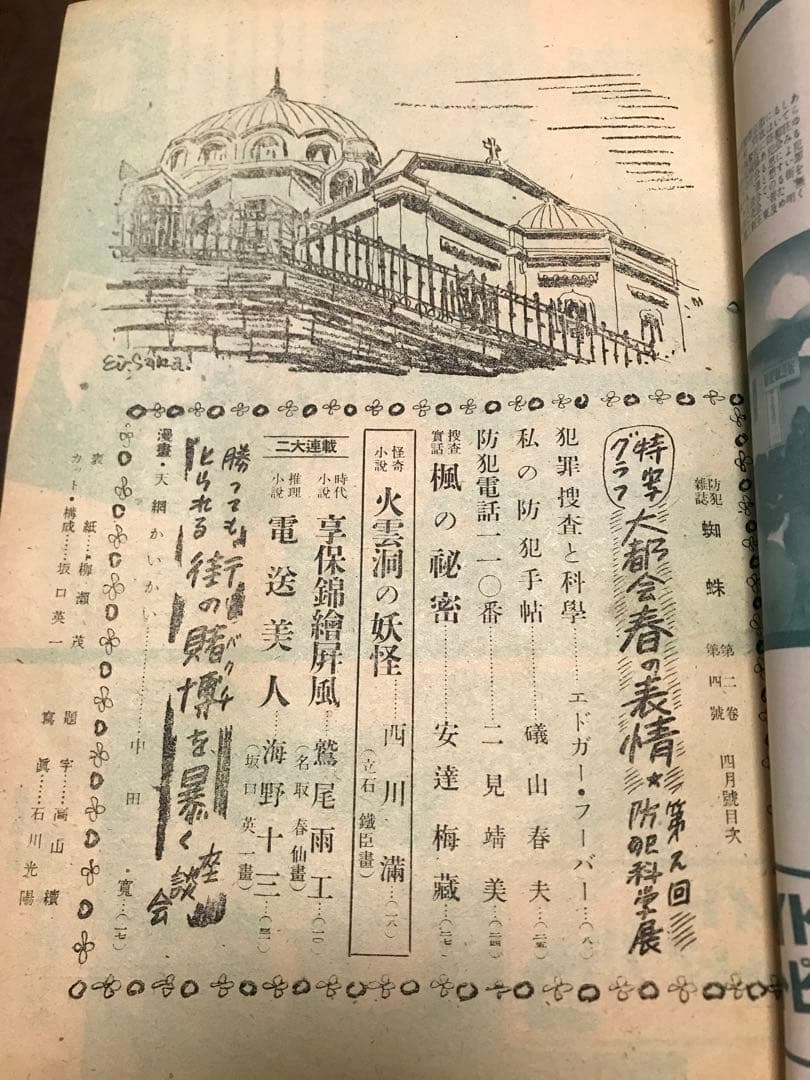 防犯雑誌 蜘蛛 第二卷 第四號 四月號目次
特写グラフ 大都会春の表情★第 回防犯科学展
犯罪搜査と科學……エドガー・フーバー…(八)
私の防犯手帖……磯山春夫…(二五)
防犯電話一一〇番……二見靖美…(二四)
搜査實話 楓の祕密……安達梅藏…(二七)
怪奇小説 火雲洞の妖怪……西川滿…(一八)
(立石鐵臣畫)
二大連載
時代小説 享保錦繪屏風…鷲尾雨工…(一〇)
(名取春仙畫)
推理小説 電送美人…海野十三…
(坂口英一畫)
勝っても とられる 街の賭博を暴く座談会
バクチ
漫畫・天網かいかい……中田・寬…(一七)
表紙……柳瀬茂
カット・構成……坂口英一
題字……高山績
寫眞……石川光陽
Ei.Saka!